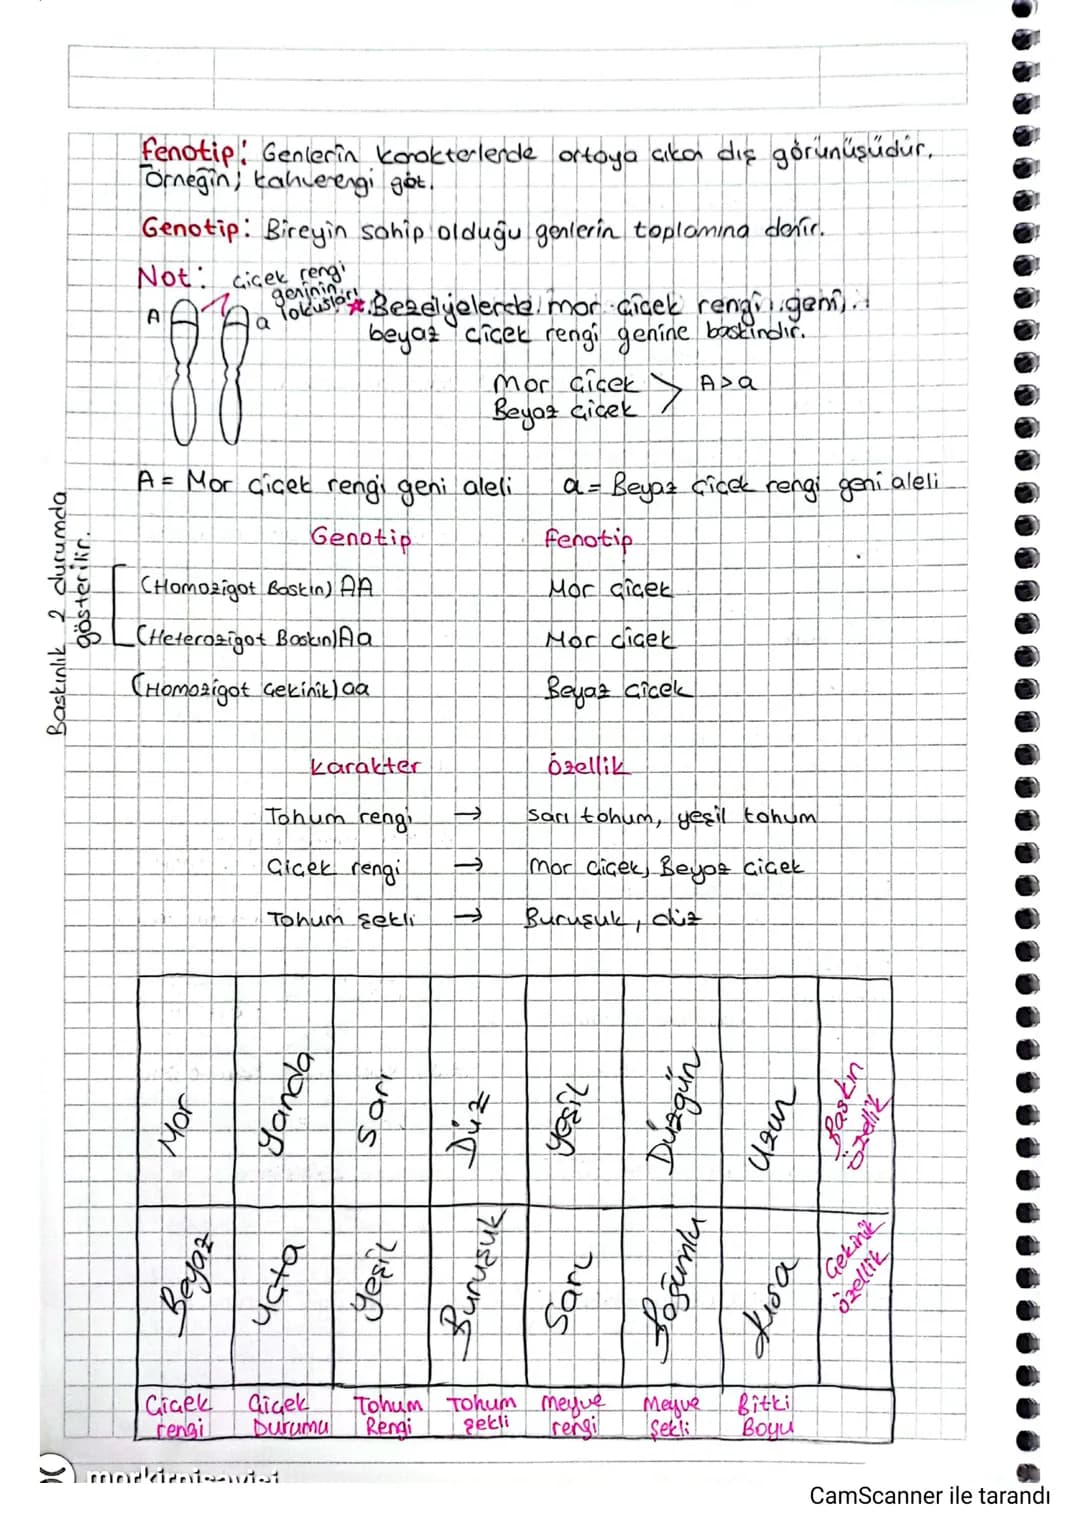 Fenotip: Genlerin karakterlerde ortaya çıkan dış görünüşüdür.
Örneğin; kahverengi göt.
Genotip: Bireyin sahip olduğu genlerin toplamına denir.
Not:
çiçek rengi
geninin
lokusları
A
a
*Bezelyelerde mor çiçek rengi geni,
beyaz çiçek rengi genine baskındır.
Mor çiçek
Beyaz çiçek
> A>a
A = Mor çiçek rengi geni aleli a = Beyaz çiçek rengi geni aleli
Baskınlık 2 durumda
gösterilir.
Genotip Fenotip
(Homozigot Baskın) AA Mor çiçek
(Heterozigot Baskın) Aa Mor çiçek
(Homozigot Çekinik) aa Beyaz çiçek
Karakter Özellik
Tohum rengi → Sarı tohum, yeşil tohum
Çiçek rengi → Mor çiçek, Beyaz çiçek
Tohum şekli → Buruşuk, düz
Mor Yanda Sarı Düz Yeşil Düzgün Uzun Baskın özellik
Beyaz Uçta Yeşil Buruşuk Sarı Boğumlu Kısa Çekinik özellik
Çiçek rengi Çiçek Durumu Tohum Rengi Tohum şekli Meyve rengi Meyve Şekli Bitki Boyu
CamScanner ile tarandı